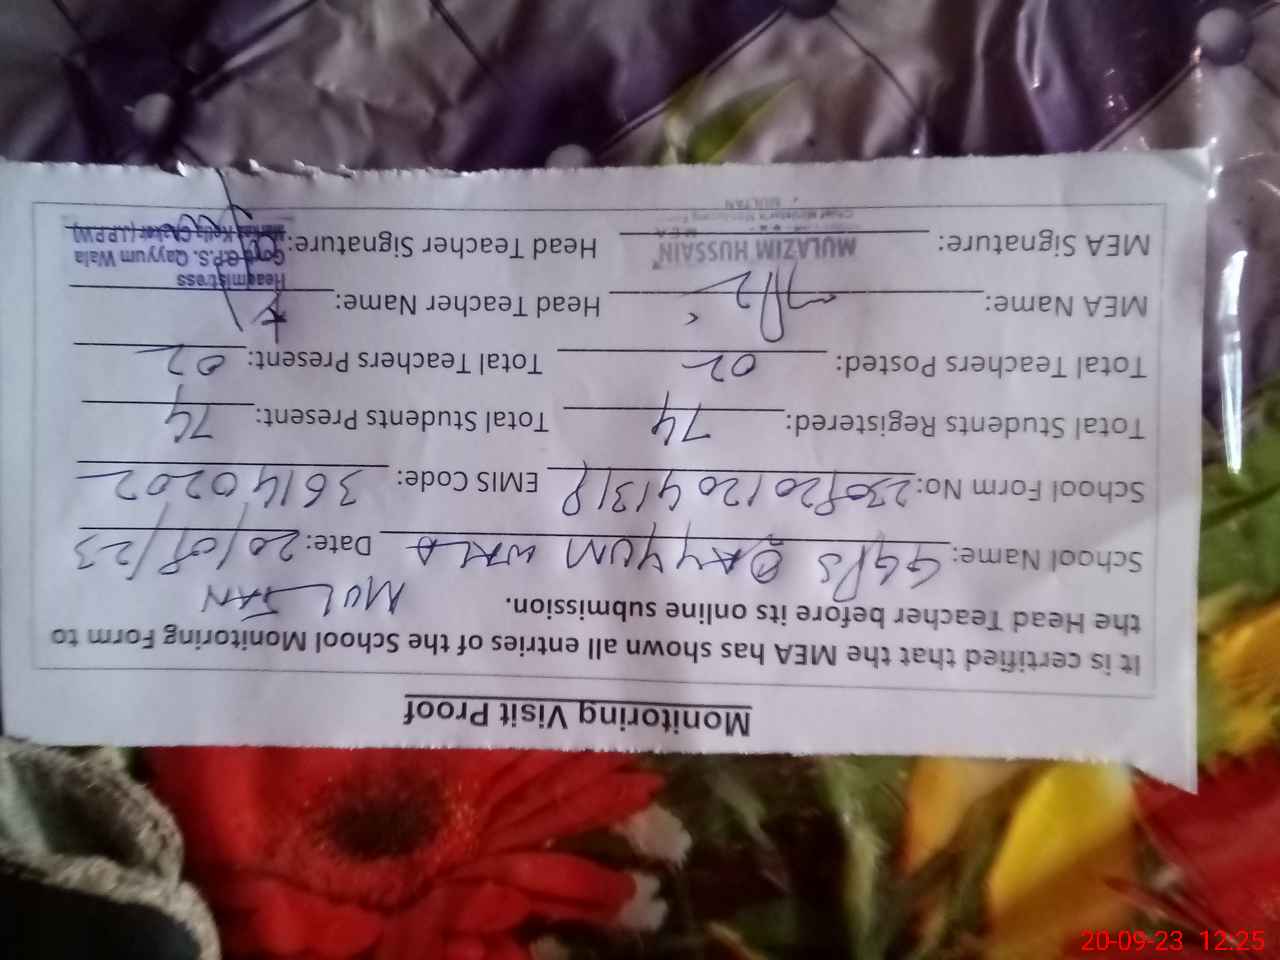 Monitoring Visit Proof
It is certified that the MEA has shown all entries of the School Monitoring Form to
the Head Teacher before its online submission. MULTAN
School Name: GGPS QAYYUM WALA Date: 20/09/23
School Form No: EMIS Code: 36140202
Total Students Registered: 74 Total Students Present: 74
Total Teachers Posted: 02 Total Teachers Present: 02
MEA Name: Head Teacher Name:
MEA Signature: Head Teacher Signature:
MULAZIM HUSSAIN
M E A
MULTAN
Headmistress
Govt G.P.S. Qayyum Wala
20-09-23 12:25